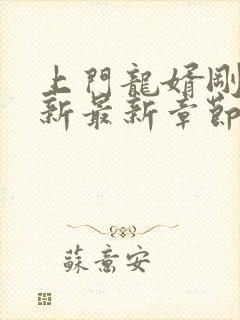 上門龍婿剛
新最新章節
蘇意安